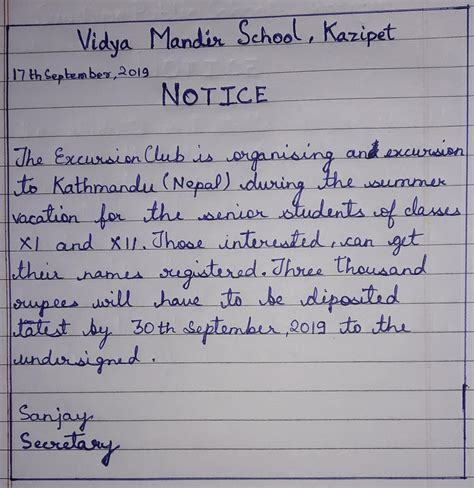 Vidya Mandir School, Kazipet
17th September, 2019
NOTICE
The Excursion Club is organising and excursion
to Kathmandu (Nepal) during the summer
vacation for the senior students of classes
XI and XII. Those interested, can get
their names registered. Three thousand
rupees will have to be diposited
latest by 30th September, 2019 to the
undersigned.
Sanjay
Secretary